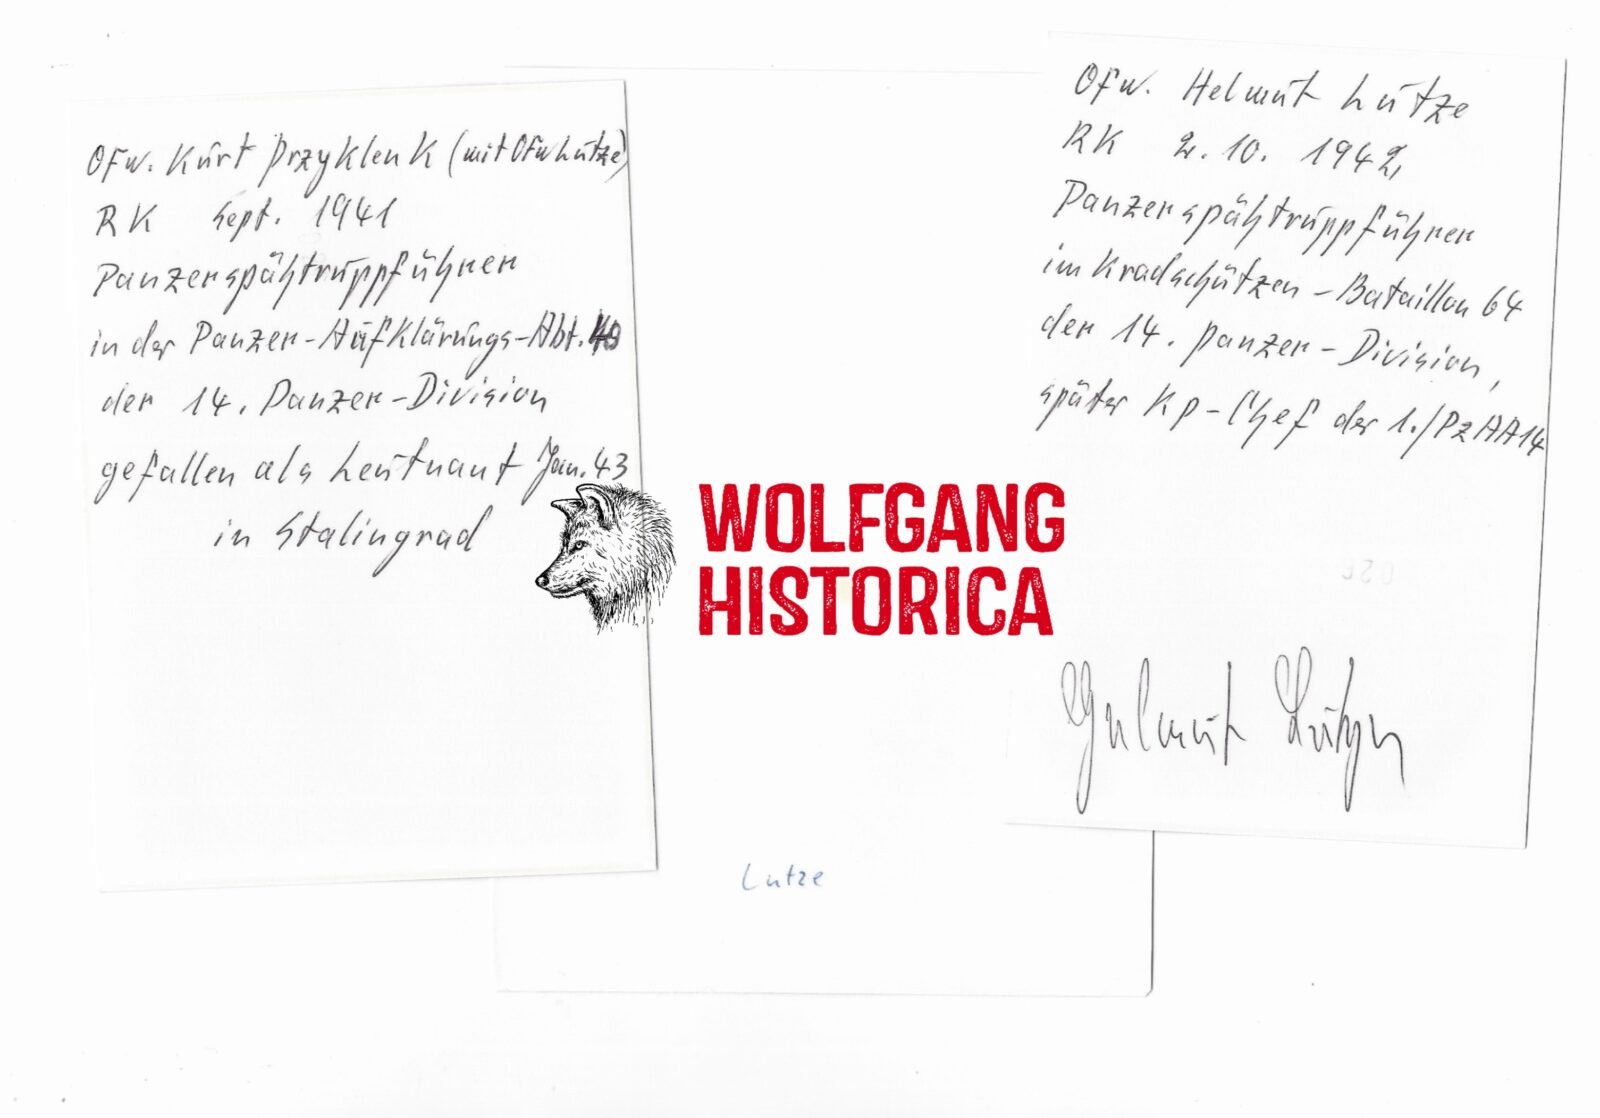 OFw. Kurt Przyklenk (mit OFw Lutze)
RK Sept. 1941
Panzerspähtruppführer
in der Panzer-Aufklärungs-Abt. 40
der 14. Panzer-Division
gefallen als Leutnant Jan. 43
in Stalingrad
OFw. Helmut Lutze
RK 2.10.1942,
Panzerspähtruppführer
im Kradschützen-Bataillon 64
der 14. Panzer-Division,
später Kp-Chef der 1./PzAA14
WOLFGANG
HISTORICA
Helmut Lutze
Lutze